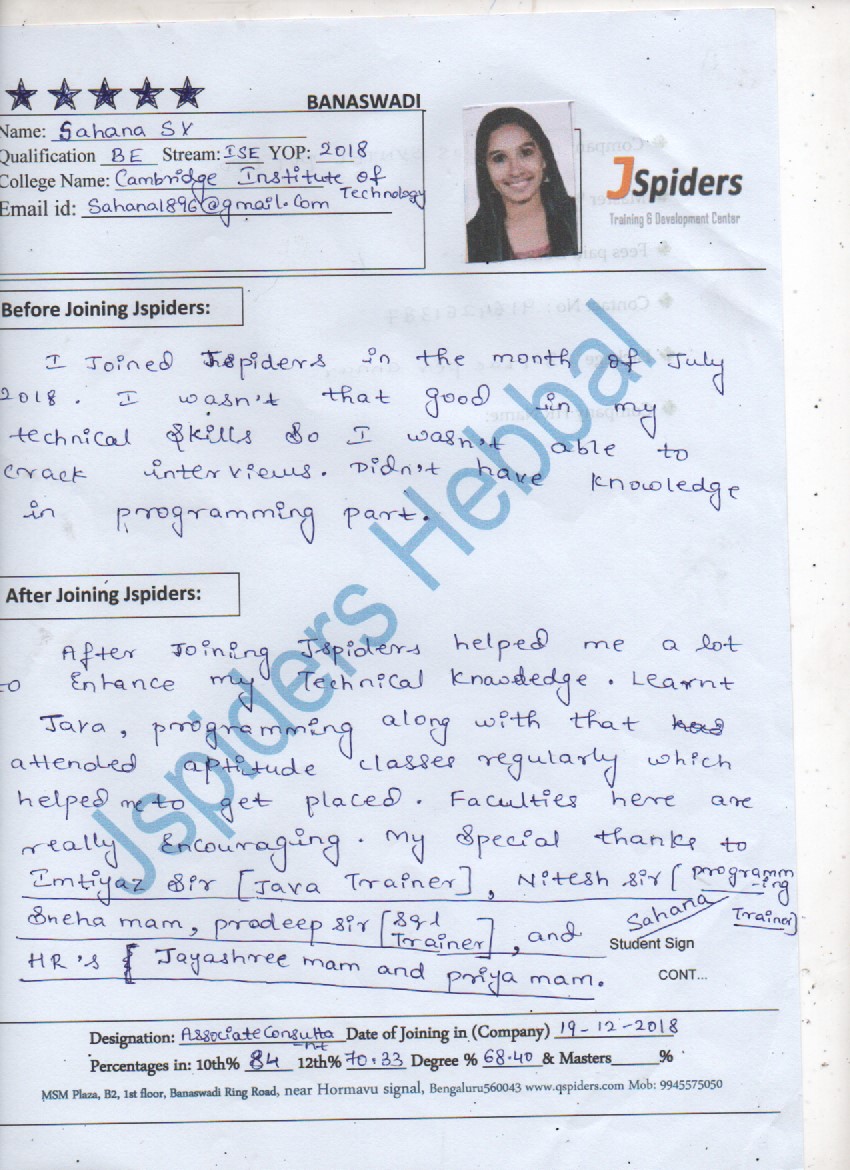 BANASWADI
Name: Sahana SV
Qualification BE Stream: ISE YOP: 2018
College Name: Cambridge Institute of Technology
Email id: Sahana1896@gmail.com
JSpiders
Training & Development Center
Before Joining Jspiders:
I Joined Jspiders in the month of July
2018. I wasn't that good in my
technical skills so I wasn't able to
crack interviews. Didn't have knowledge
in programming part.
Jspiders Hebbal
After Joining Jspiders:
After Joining Jspiders helped me a lot
to Enhance my Technical knowledge. Learnt
Java, programming along with that
attended aptitude classes regularly which
helped me to get placed. Faculties here are
really Encouraging. My Special thanks to
Imtiyaz Sir [Java Trainer], Nitesh sir [programming Trainer]
Sneha mam, pradeep sir [Sql Trainer], and
HR's { Jayashree mam and priya mam.
Sahana
Student Sign
CONT...
Designation: Associate Consultant Date of Joining in (Company) 19-12-2018
Percentages in: 10th% 84 12th% 70.33 Degree % 68.40 & Masters_____%
MSM Plaza, B2, 1st floor, Banaswadi Ring Road, near Hormavu signal, Bengaluru560043 www.qspiders.com Mob: 9945575050